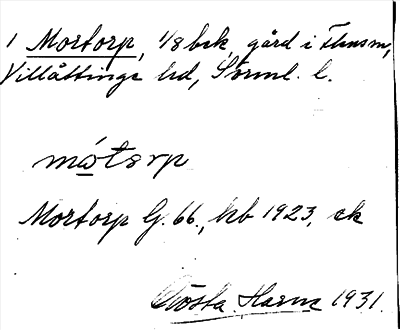 1 Mortorp, 1/8 bsk, gård i Flens sn,
Villåttinge hd, Sörml. l.
mo͟tsrp
Mortorp G. 66., hb 1923, ek
Gösta Harns 1931.